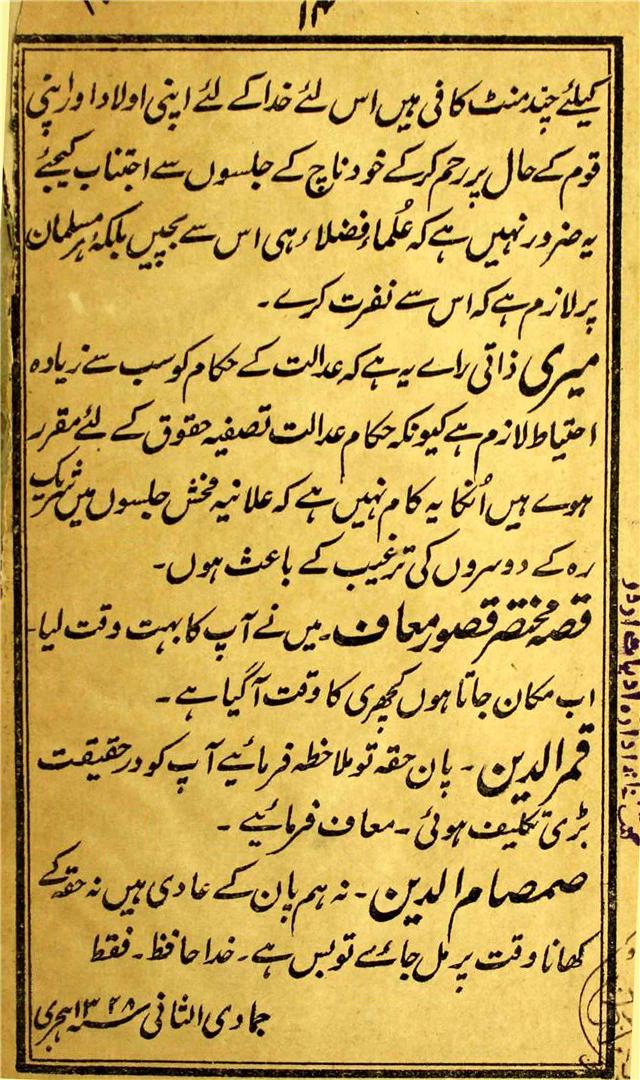 ۱۴
کیلئے چند منٹ کافی ہیں اس لئے خدا کے لئے اپنی اولاد اور اپنی
قوم کے حال پر رحم کر کے خود ناچ کے جلسوں سے اجتناب کیجئے
یہ ضرور نہیں ہے کہ عُلماء فضلاء ہی اس سے بچیں بلکہ ہر مسلمان
پر لازم ہے کہ اس سے نفرت کرے۔
میری ذاتی راے یہ ہے کہ عدالت کے حکام کو سب سے زیادہ
احتیاط لازم ہے کیونکہ حکام عدالت تصفیہ حقوق کے لئے مقرر
ہوے ہیں اُنکا یہ کام نہیں ہے کہ علانیہ فحش جلسوں میں شریک
رہ کے دوسروں کی ترغیب کے باعث ہوں۔
قصہ مختصر قصور معاف۔ میں نے آپ کا بہت وقت لیا۔
اب مکان جاتا ہوں کچہری کا وقت آگیا ہے۔
قمر الدین۔ پان حقہ تو ملاخطہ فرمائیے آپ کو در حقیقت
بڑی تکلیف ہوئی۔ معاف فرمائیے۔
صمصام الدین۔ نہ ہم پان کے عادی ہیں نہ حقہ کے
کھانا وقت پر مل جائے تو بس ہے۔ خدا حافظ۔ فقط
جمادی الثانی سنہ ۱۳۲۸ ہجری